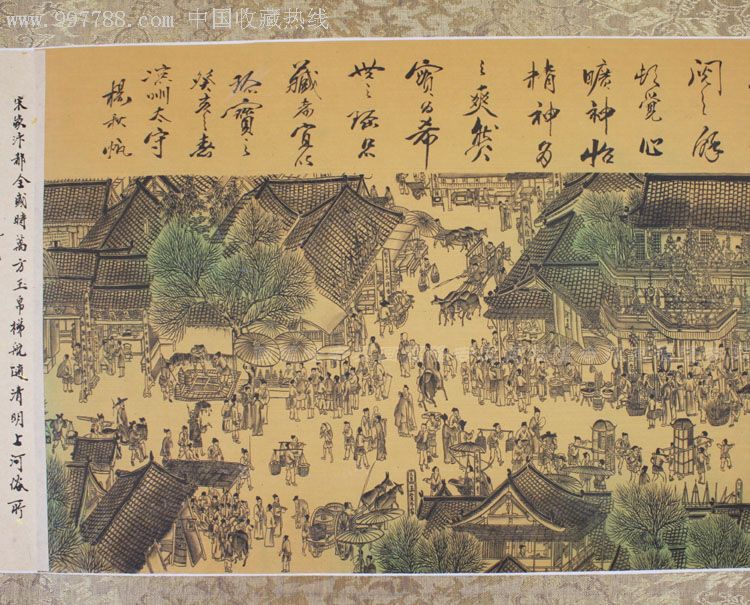 www.997788.com 中国收藏热线
閱之
頓覺心
曠神怡
精神為
之爽然
實為希
世之
藏者宜
珍寶之
癸亥之春
太守
楊
宋家汴都全盛時萬方玉帛梯航隨清明上河俗所